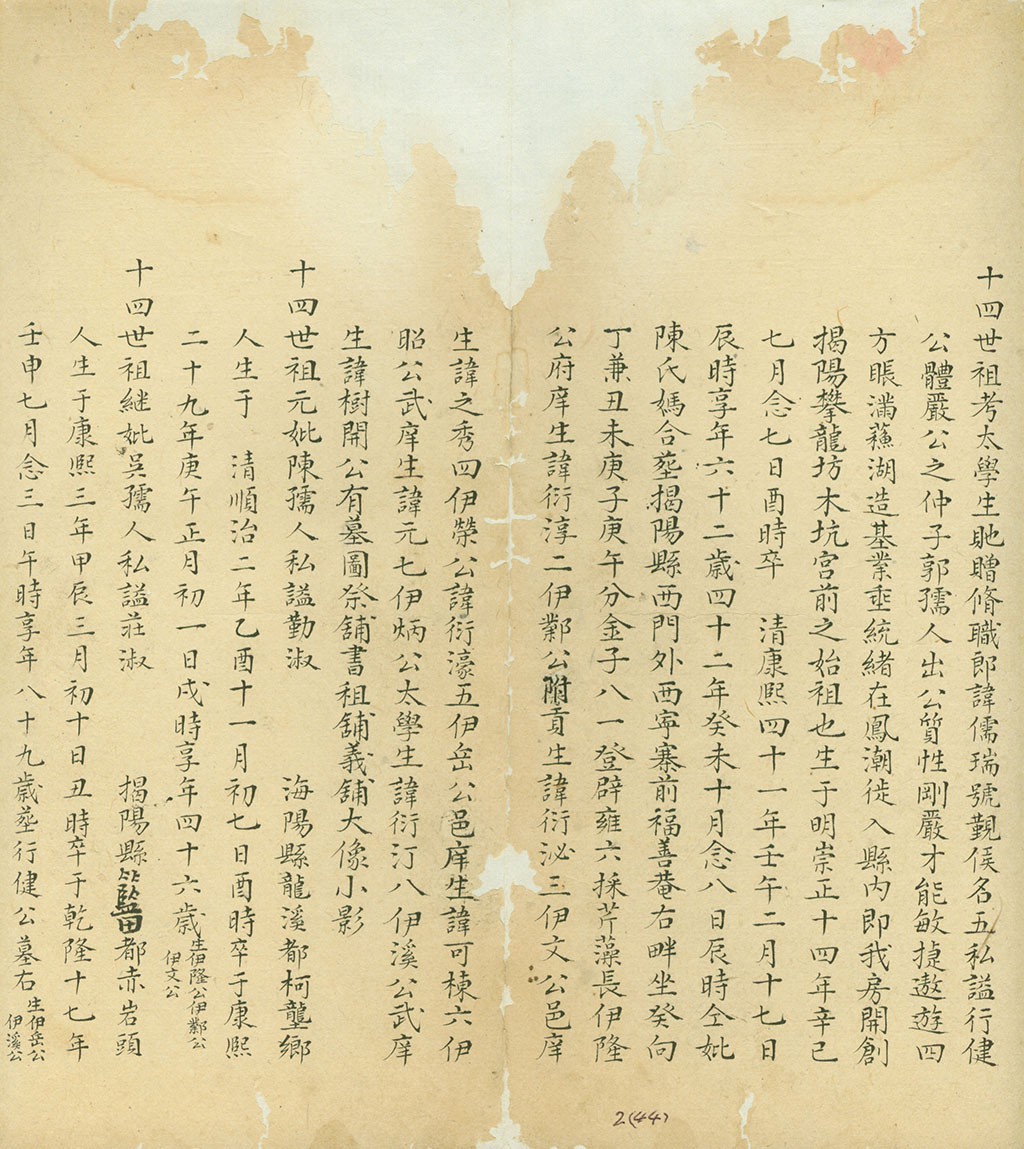 十四世祖考太學生貤贈脩職郎諱儒瑞號覲侯名五私謚行健
公體嚴公之仲子郭孺人出公質性剛嚴才能敏捷遨遊四
方賬滿蘓湖造基業垂統緒在鳳潮徙入縣內即我房開創
揭陽攀龍坊木坑宮前之始祖也生于明崇正十四年辛巳
七月念七日酉時卒　清康熙四十一年壬午二月十七日
辰時享年六十二歲四十二年癸未十月念八日辰時仝妣
陳氏媽合塟揭陽縣西門外西寜寨前福善菴右畔坐癸向
丁兼丑未庚子庚午分金子八一登辟雍六採芹藻長伊隆
公府庠生諱衍淳二伊鄴公附貢生諱衍泌三伊文公邑庠
生諱之秀四伊榮公諱衍濠五伊岳公邑庠生諱可棟六伊
昭公武庠生諱元七伊炳公太學生諱衍汀八伊溪公武庠
生諱樹開公有墓圖祭舖書租舖義舖大像小影
十四世祖元妣陳孺人私謚勤淑　海陽縣龍溪都柯壟鄉
人生于　清順治二年乙酉十一月初七日酉時卒于康熙
二十九年庚午正月初一日戌時享年四十六歲生伊隆公伊鄴公
伊文公
十四世祖継妣吳孺人私謚莊淑　揭陽縣藍田都赤岩頭
人生于康熙三年甲辰三月初十日丑時卒于乾隆十七年
壬申七月念三日午時享年八十九歲塟行健公墓右生伊岳公
伊溪公
2(44)